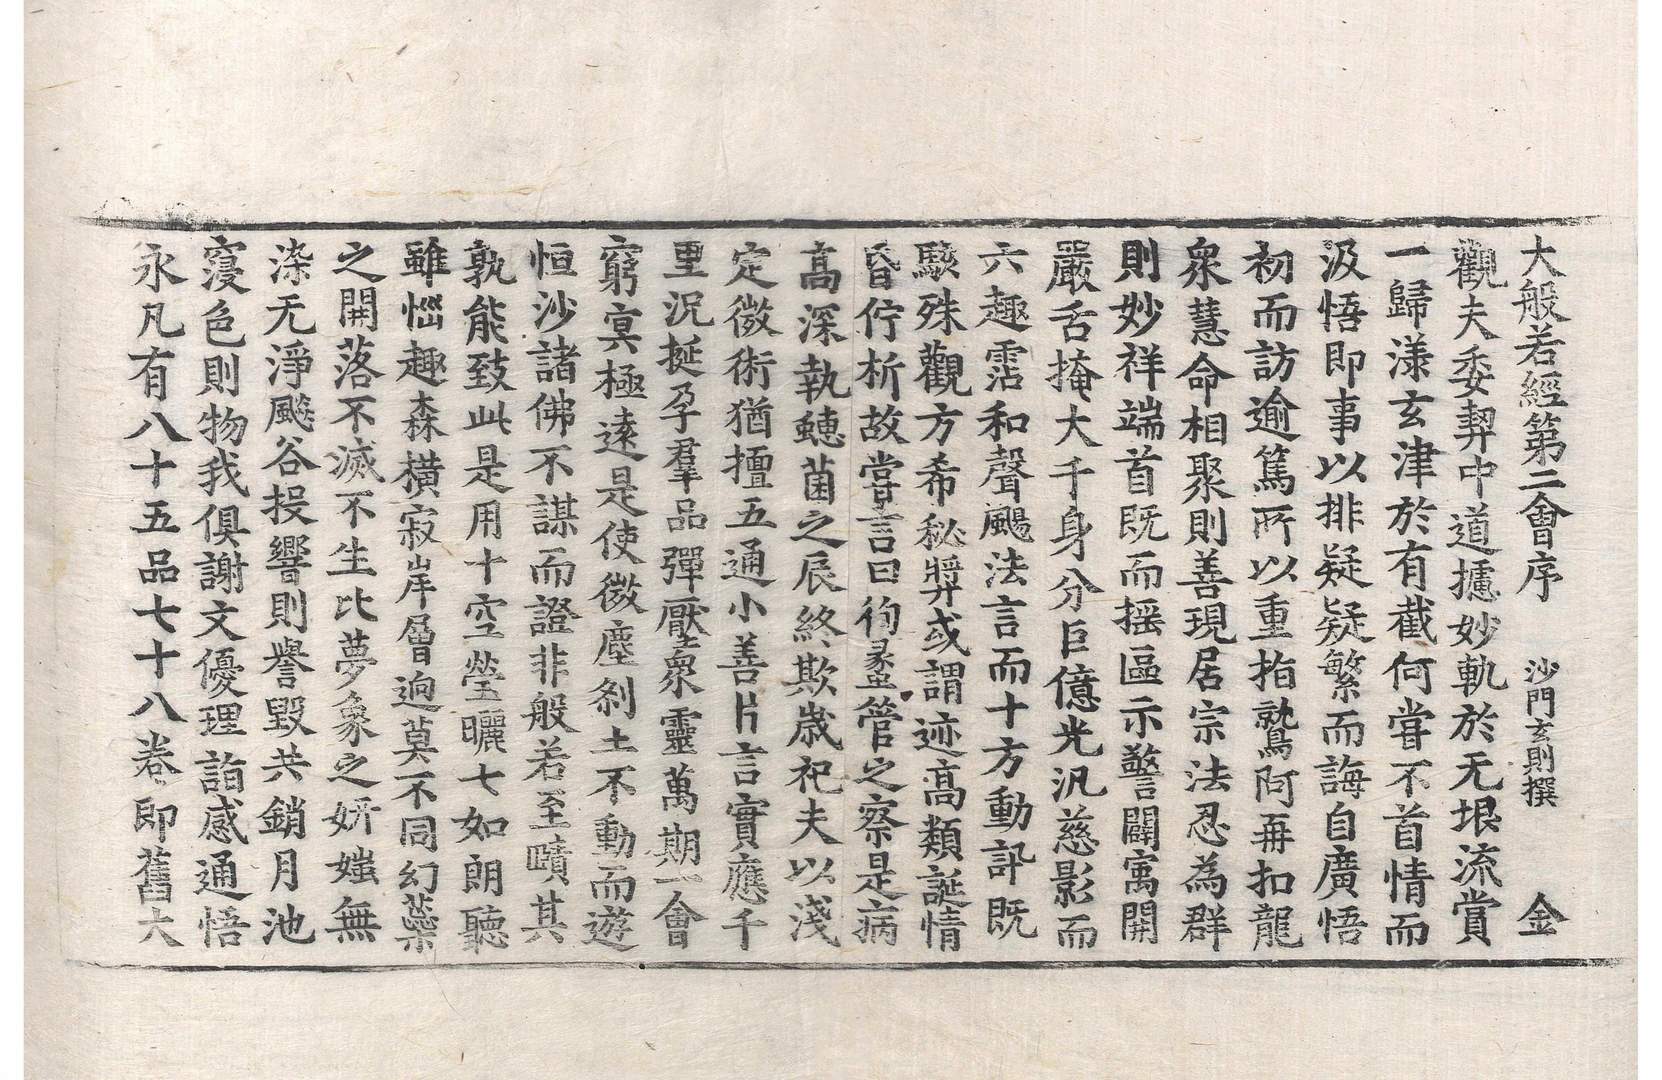 大般若經第二會序 沙門玄則撰 金
觀夫委契中道攄妙軌於无垠流賞
一歸漾玄津於有截何甞不首情而
汲悟即事以排疑疑繁而誨自廣悟
初而訪逾篤所以重指鷲阿再扣龍
衆慧命相聚則善現居宗法忍為群
則妙祥端首既而搖區示警闢寓開
嚴舌掩大千身分巨億光汎慈影而
六趣霑和聲颺法言而十方動訊既
駭殊觀方希秘弉或謂迹高類誕情
昏佇析故嘗言曰徇蠡管之察是病
高深執蟪菌之辰終欺歲祀夫以淺
定微術猶擅五通小善片言實應千
里況挻孕羣品彈壓衆靈萬期一會
窮㝠極遠是使微塵剎土不動而遊
恒沙諸佛不謀而證非般若至賾其
孰能致此是用十空瑩曬七如朗聽
雖惱趣森橫寂岸層逈莫不同幻蘂
之開落不滅不生比夢象之姸媸無
染无淨飈谷投響則譽毀共銷月池
寖色則物我俱謝文優理詣感通悟
永凡有八十五品七十八卷即舊大